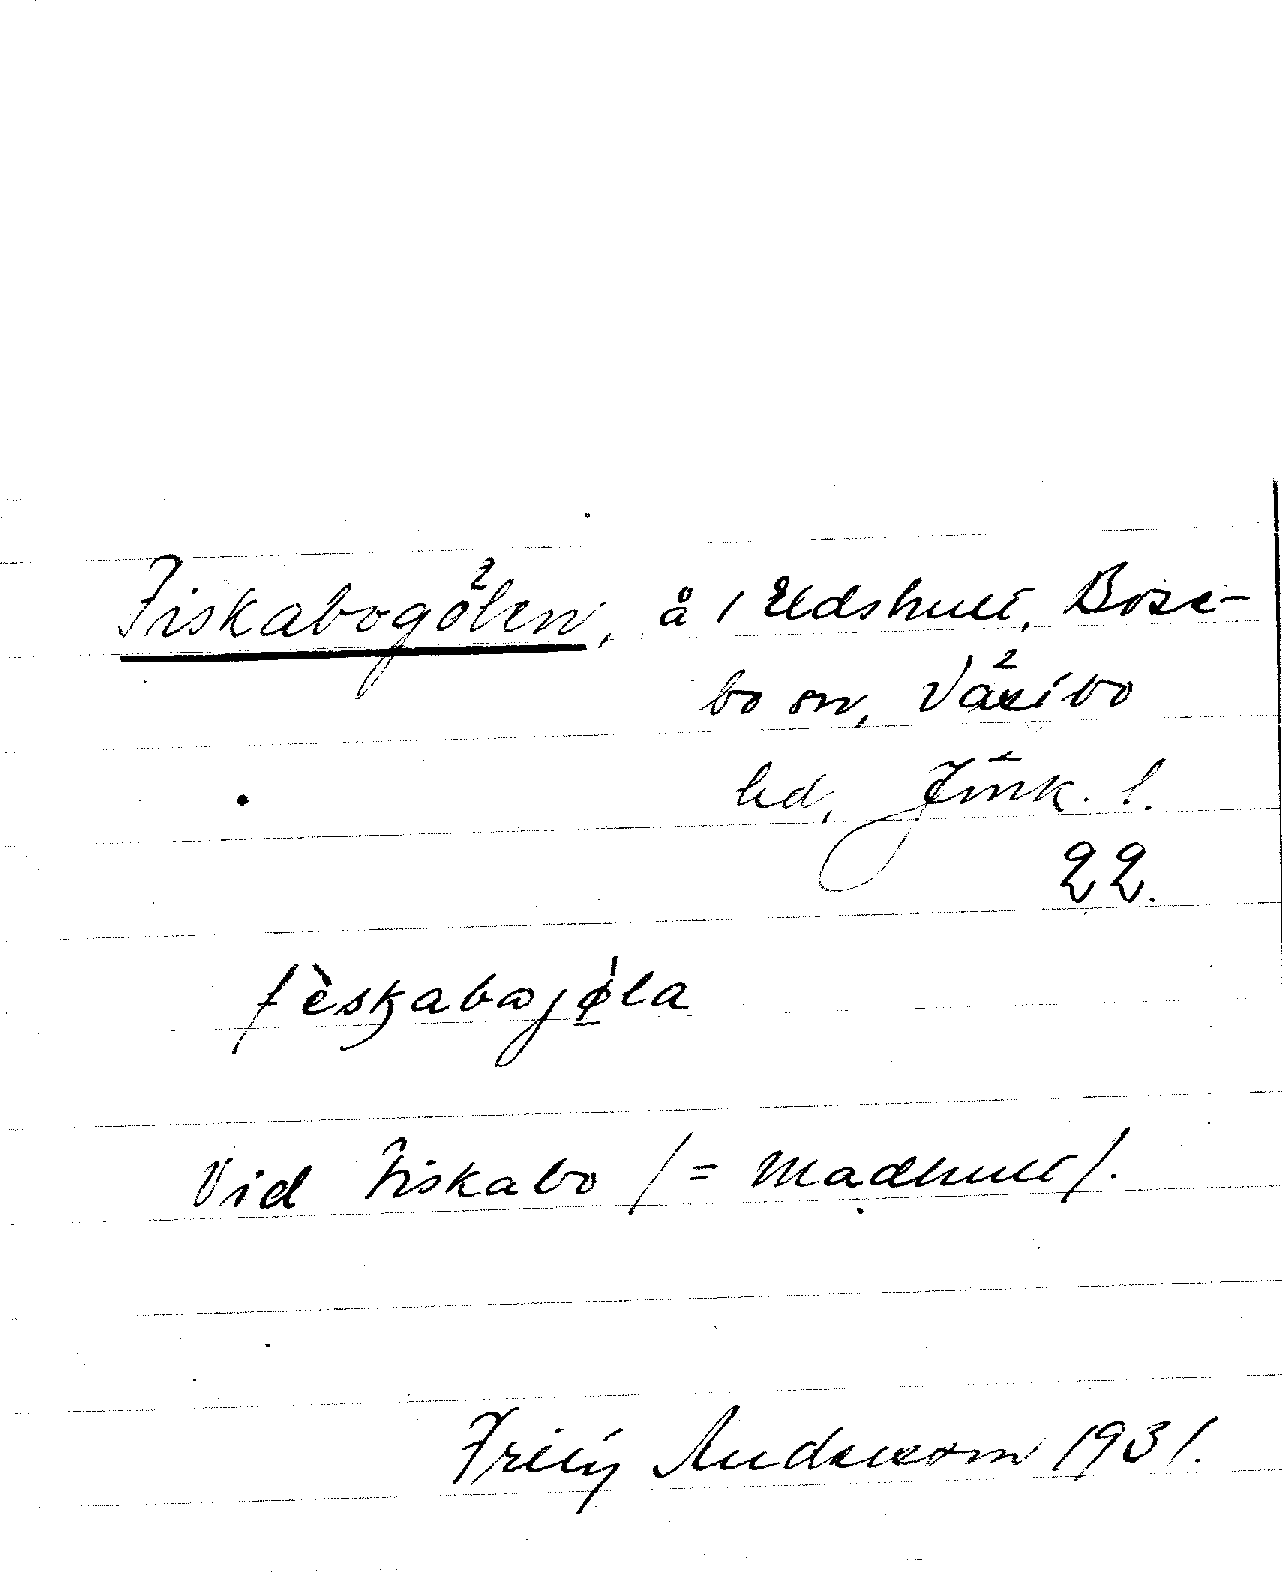 Fiskabogölen, å i Eldshult, Bose-
bo sn, Västbo
hd, Jönk. l.
22.
fèskabωjøla
Vid Fiskabo /= Madhult/.
Andersson 1931.